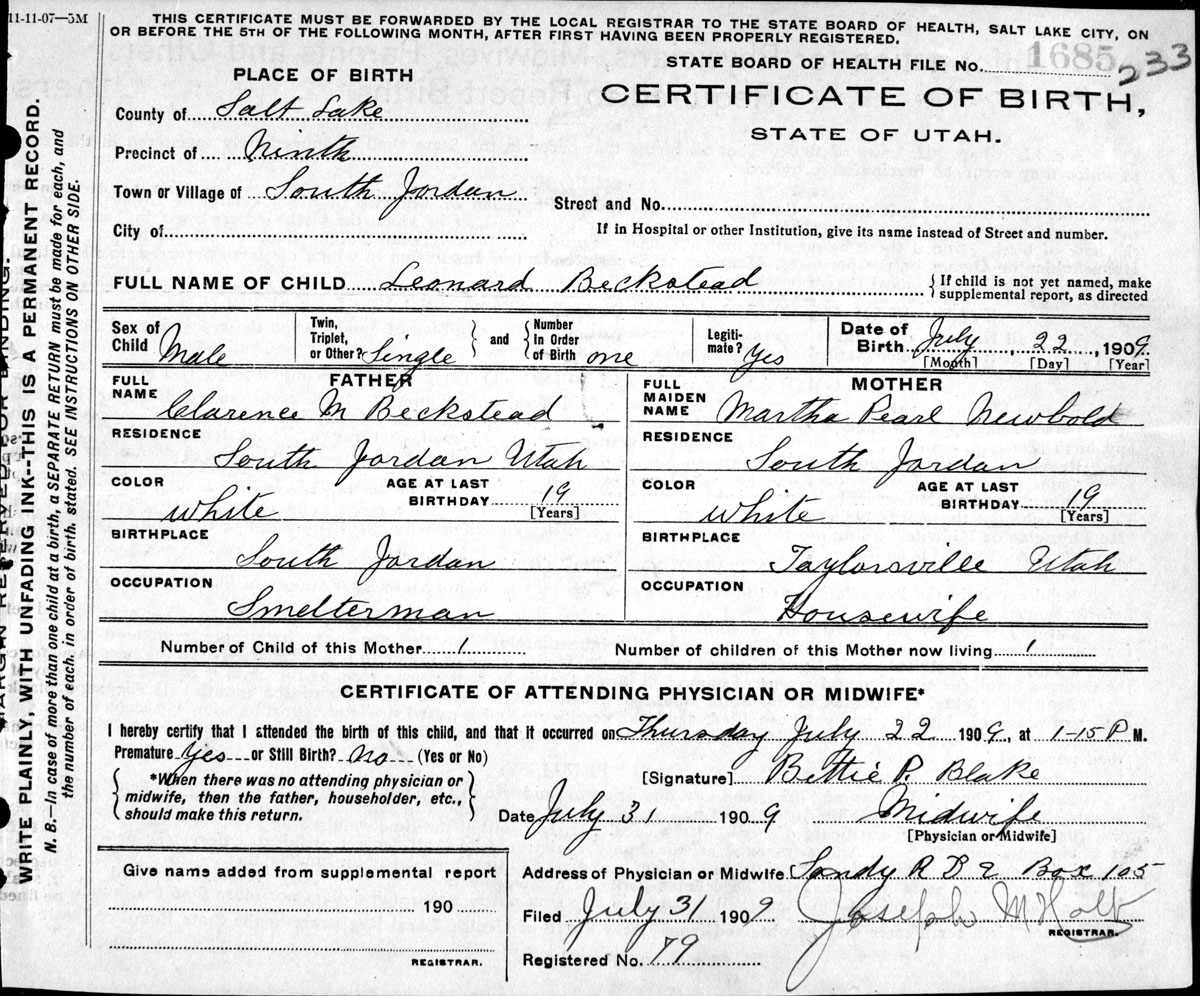 11-11-07—5M
THIS CERTIFICATE MUST BE FORWARDED BY THE LOCAL REGISTRAR TO THE STATE BOARD OF HEALTH, SALT LAKE CITY, ON
OR BEFORE THE 5TH OF THE FOLLOWING MONTH, AFTER FIRST HAVING BEEN PROPERLY REGISTERED.
STATE BOARD OF HEALTH FILE No. 1685 233
PLACE OF BIRTH
CERTIFICATE OF BIRTH,
STATE OF UTAH.
County of Salt Lake
Precinct of Ninth
Town or Village of South Jordan
Street and No.
City of
If in Hospital or other Institution, give its name instead of Street and number.
FULL NAME OF CHILD Leonard Beckstead
{ If child is not yet named, make
supplemental report, as directed
Sex of Child Male
Twin, Triplet, or Other? Single
and
Number In Order of Birth one
Legitimate? Yes
Date of Birth July, 22, 1909.
[Month] [Day] [Year]
FATHER
FULL NAME Clarence M Beckstead
RESIDENCE South Jordan Utah
COLOR White
AGE AT LAST BIRTHDAY 19
[Years]
BIRTHPLACE South Jordan
OCCUPATION Smelterman
MOTHER
FULL MAIDEN NAME Martha Pearl Newbold
RESIDENCE South Jordan
COLOR White
AGE AT LAST BIRTHDAY 19
[Years]
BIRTHPLACE Taylorsville Utah
OCCUPATION Housewife
Number of Child of this Mother 1
Number of children of this Mother now living 1
CERTIFICATE OF ATTENDING PHYSICIAN OR MIDWIFE*
I hereby certify that I attended the birth of this child, and that it occurred on Thursday July 22 1909, at 1-15 P M.
Premature Yes or Still Birth? No (Yes or No)
{ *When there was no attending physician or
midwife, then the father, householder, etc.,
should make this return. }
[Signature] Bettie P. Blake
Date July 31 1909 Midwife
[Physician or Midwife]
Give name added from supplemental report
190
REGISTRAR.
Address of Physician or Midwife Sandy R D 2 Box 105
Filed July 31 1909 Joseph M Holt
REGISTRAR.
Registered No. 79
MARGIN RESERVED FOR BINDING.
WRITE PLAINLY WITH UNFADING INK--THIS IS A PERMANENT RECORD.
N. B.—In case of more than one child at a birth, a SEPARATE RETURN must be made for each, and
the number of each, in order of birth, stated. SEE INSTRUCTIONS ON OTHER SIDE.